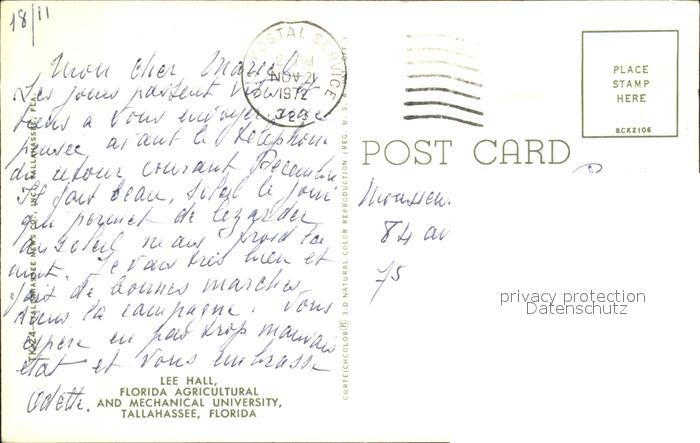 18/11
Mon cher Marcel
Les jours passent vite et
tiens a vous envoyer une
pensée avant le téléphone
de retour courant Decembre
Il fait beau, soleil le jour
qui permet de lezarder
au soleil mais froid la
nuit. Je vais très bien et
fait de bonnes marches
dans la campagne. Vous
espere en pas trop mauvais
état et vous embrasse
Odette.
LEE HALL,
FLORIDA AGRICULTURAL
AND MECHANICAL UNIVERSITY,
TALLAHASSEE, FLORIDA
POSTAL SERVICE
PM
NOV 21
1972
323
CURTEICHCOLOR® 3-D NATURAL COLOR REPRODUCTION (REG. U.S.A.
POST CARD
PLACE
STAMP
HERE
BCK2106
Monsieu
84 av
75
privacy protection
Datenschutz